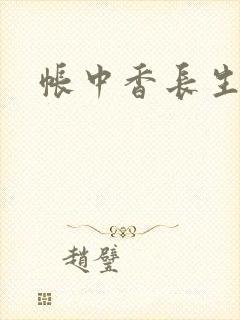 帳中香長生
趙璧